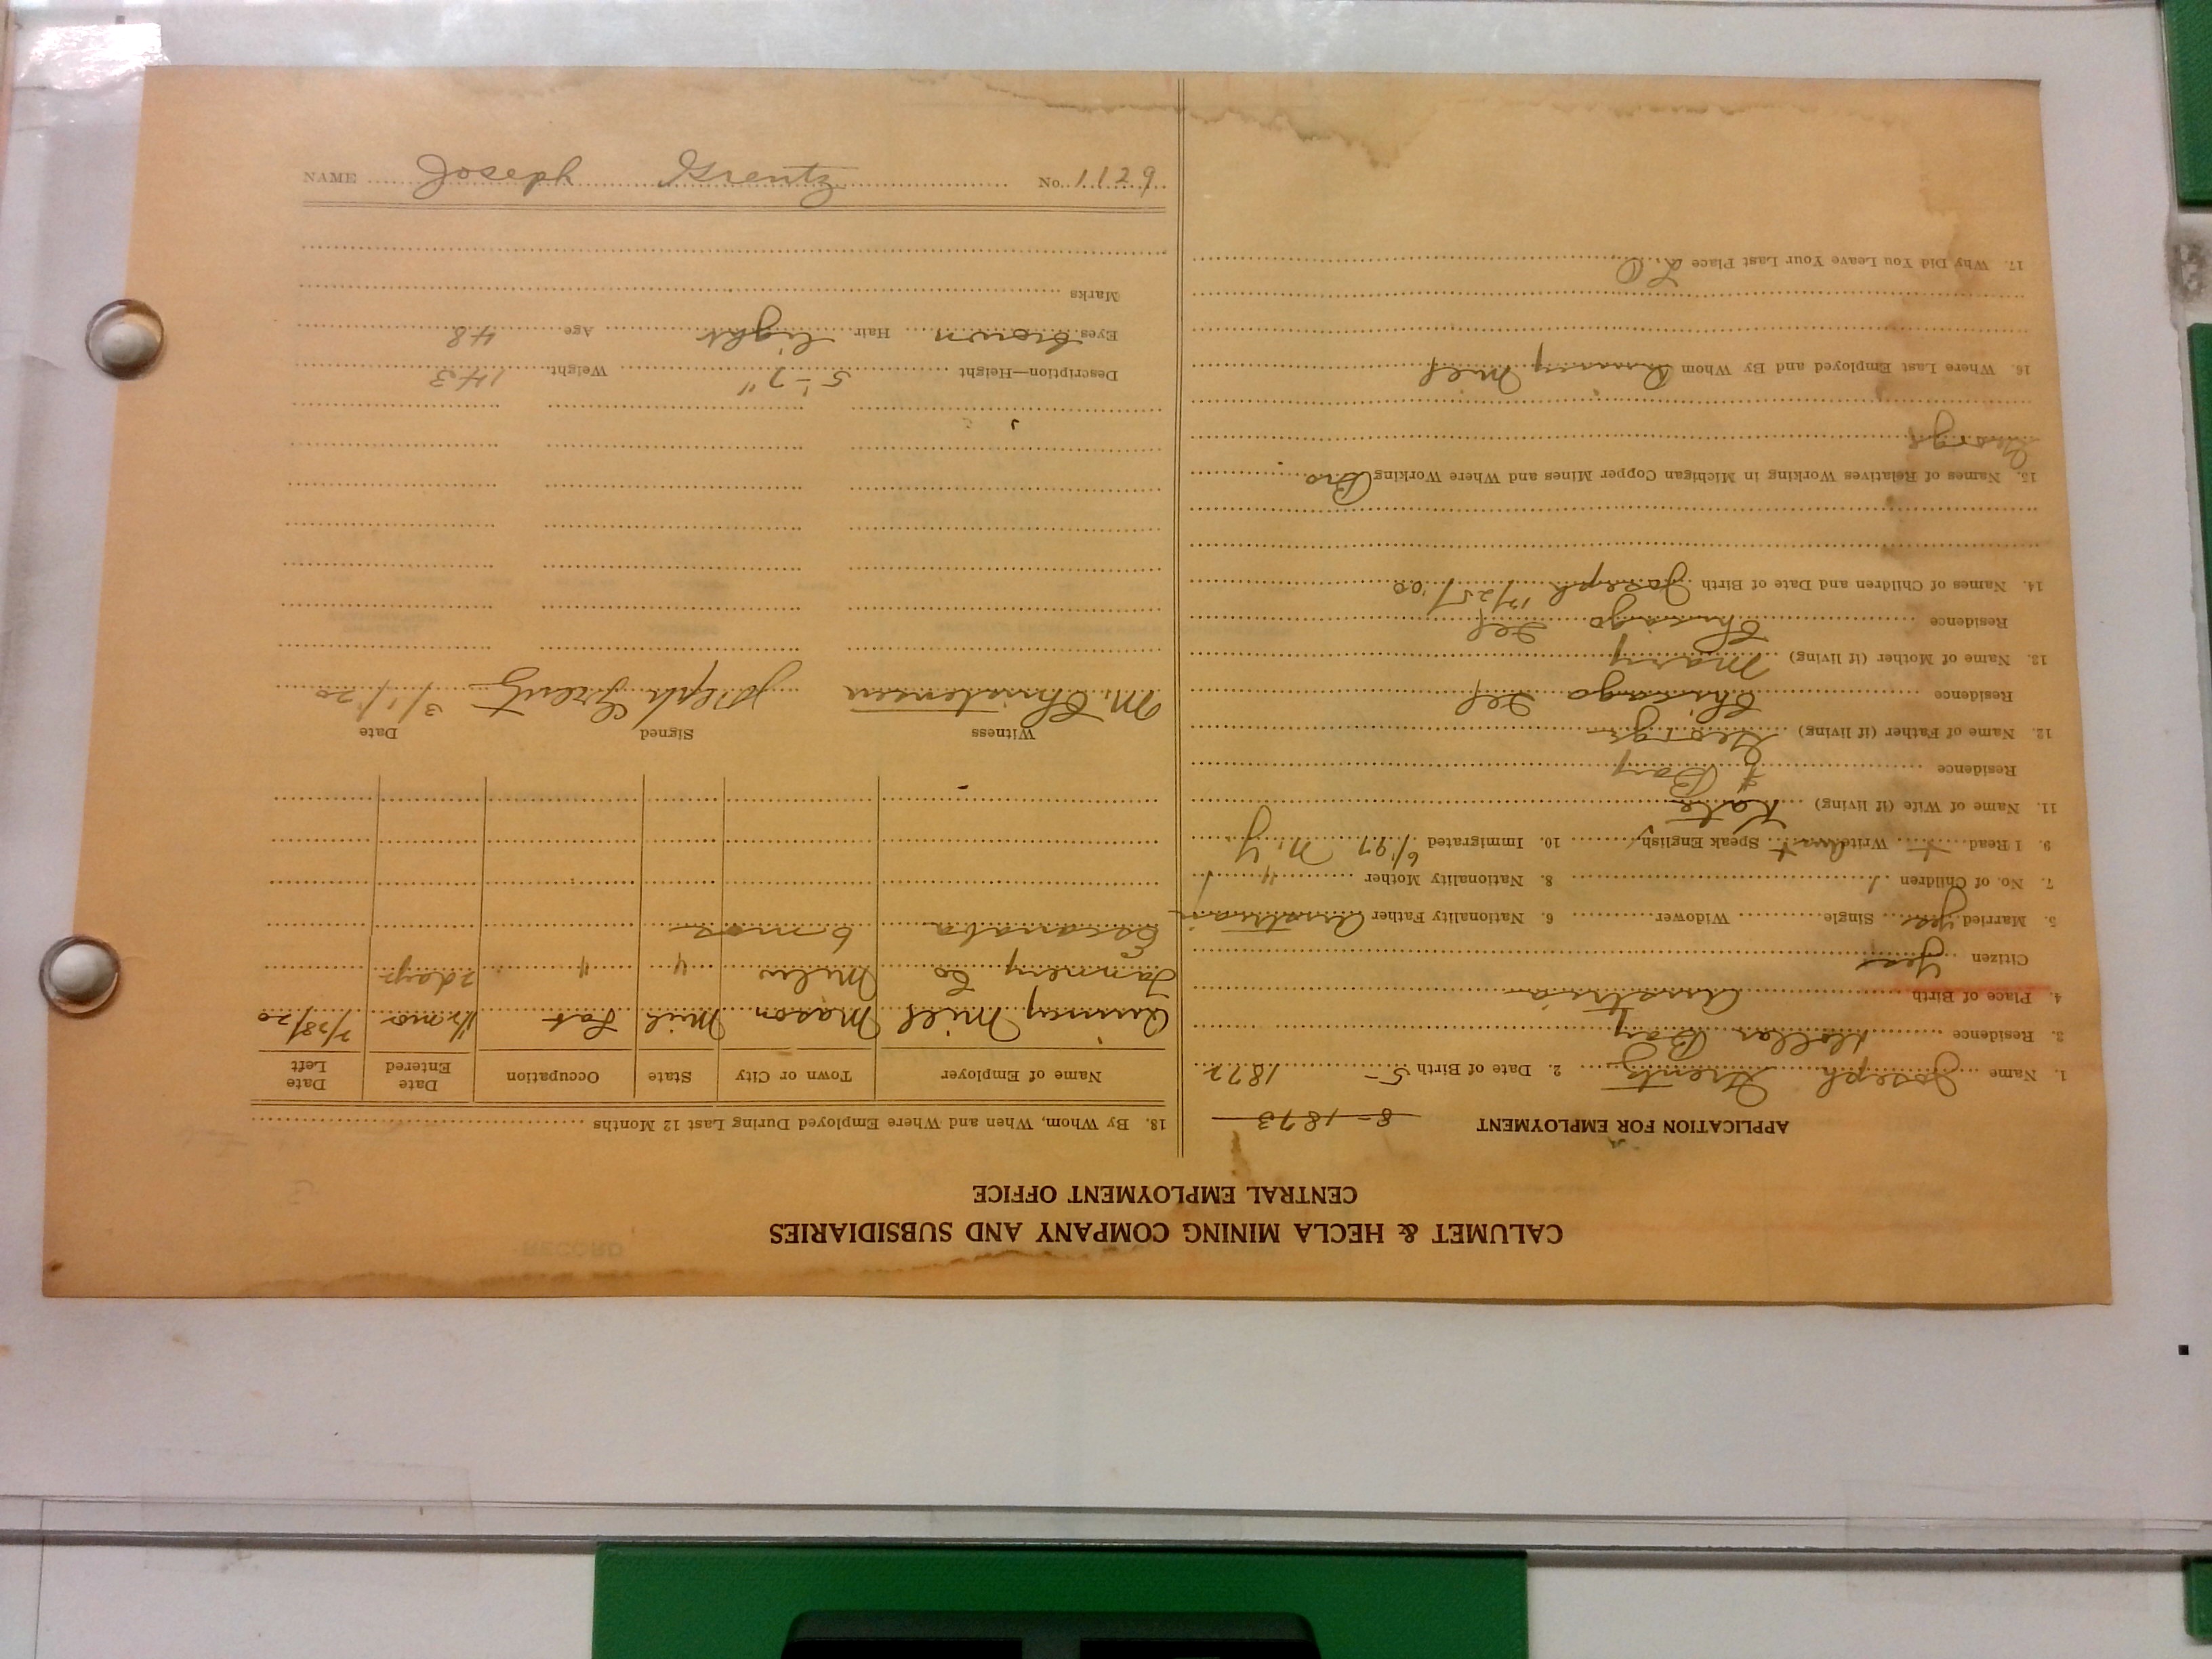 CALUMET & HECLA MINING COMPANY AND SUBSIDIARIES
CENTRAL EMPLOYMENT OFFICE
APPLICATION FOR EMPLOYMENT 8-1873
1. Name Joseph Grentz 2. Date of Birth 5- 1872
3. Residence Dollar Bay
4. Place of Birth Austria
Citizen yes
5. Married yes Single Widower 6. Nationality Father Austrian
7. No. of Children 1 8. Nationality Mother "
9. I Read + Write Speak English 10. Immigrated 6/'97 N.Y
11. Name of Wife (if living) Kate
Residence Bay
12. Name of Father (if living) George
Residence Chicago Ill
13. Name of Mother (if living) Mary
Residence Chicago Ill
14. Names of Children and Date of Birth Joseph 12/25/00
15. Names of Relatives Working in Michigan Copper Mines and Where Working Bro
George
16. Where Last Employed and By Whom Quincy Mill
17. Why Did You Leave Your Last Place
18. By Whom, When and Where Employed During Last 12 Months
Name of Employer Town or City State Occupation Date Entered Date Left
Quincy Mill Mason Mich 1½ mo 2/28/20
Tannery Co " " 2 days
Escanaba 6 mos
Witness Signed Date
M. Christensen Joseph Grentz 3/1/20
Description—Height 5-7" Weight 143
Eyes brown Hair light Age 48
Marks
NAME Joseph Grentz No. 1129
RECORD